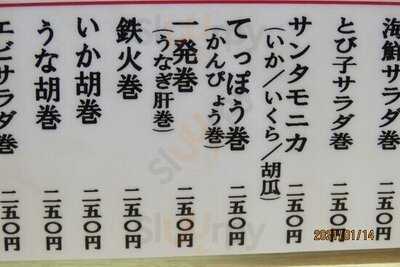 海鮮サラダ巻 二五〇円
とび子サラダ巻 二五〇円
サンタモニカ
(いか/いくら/胡瓜) 二五〇円
てっぽう巻
(かんぴょう巻) 二五〇円
一発巻
(うなぎ肝巻) 二五〇円
鉄火巻 二五〇円
いか胡巻 二五〇円
うな胡巻 二五〇円
エビサラダ巻 二五〇円
2021/01/14